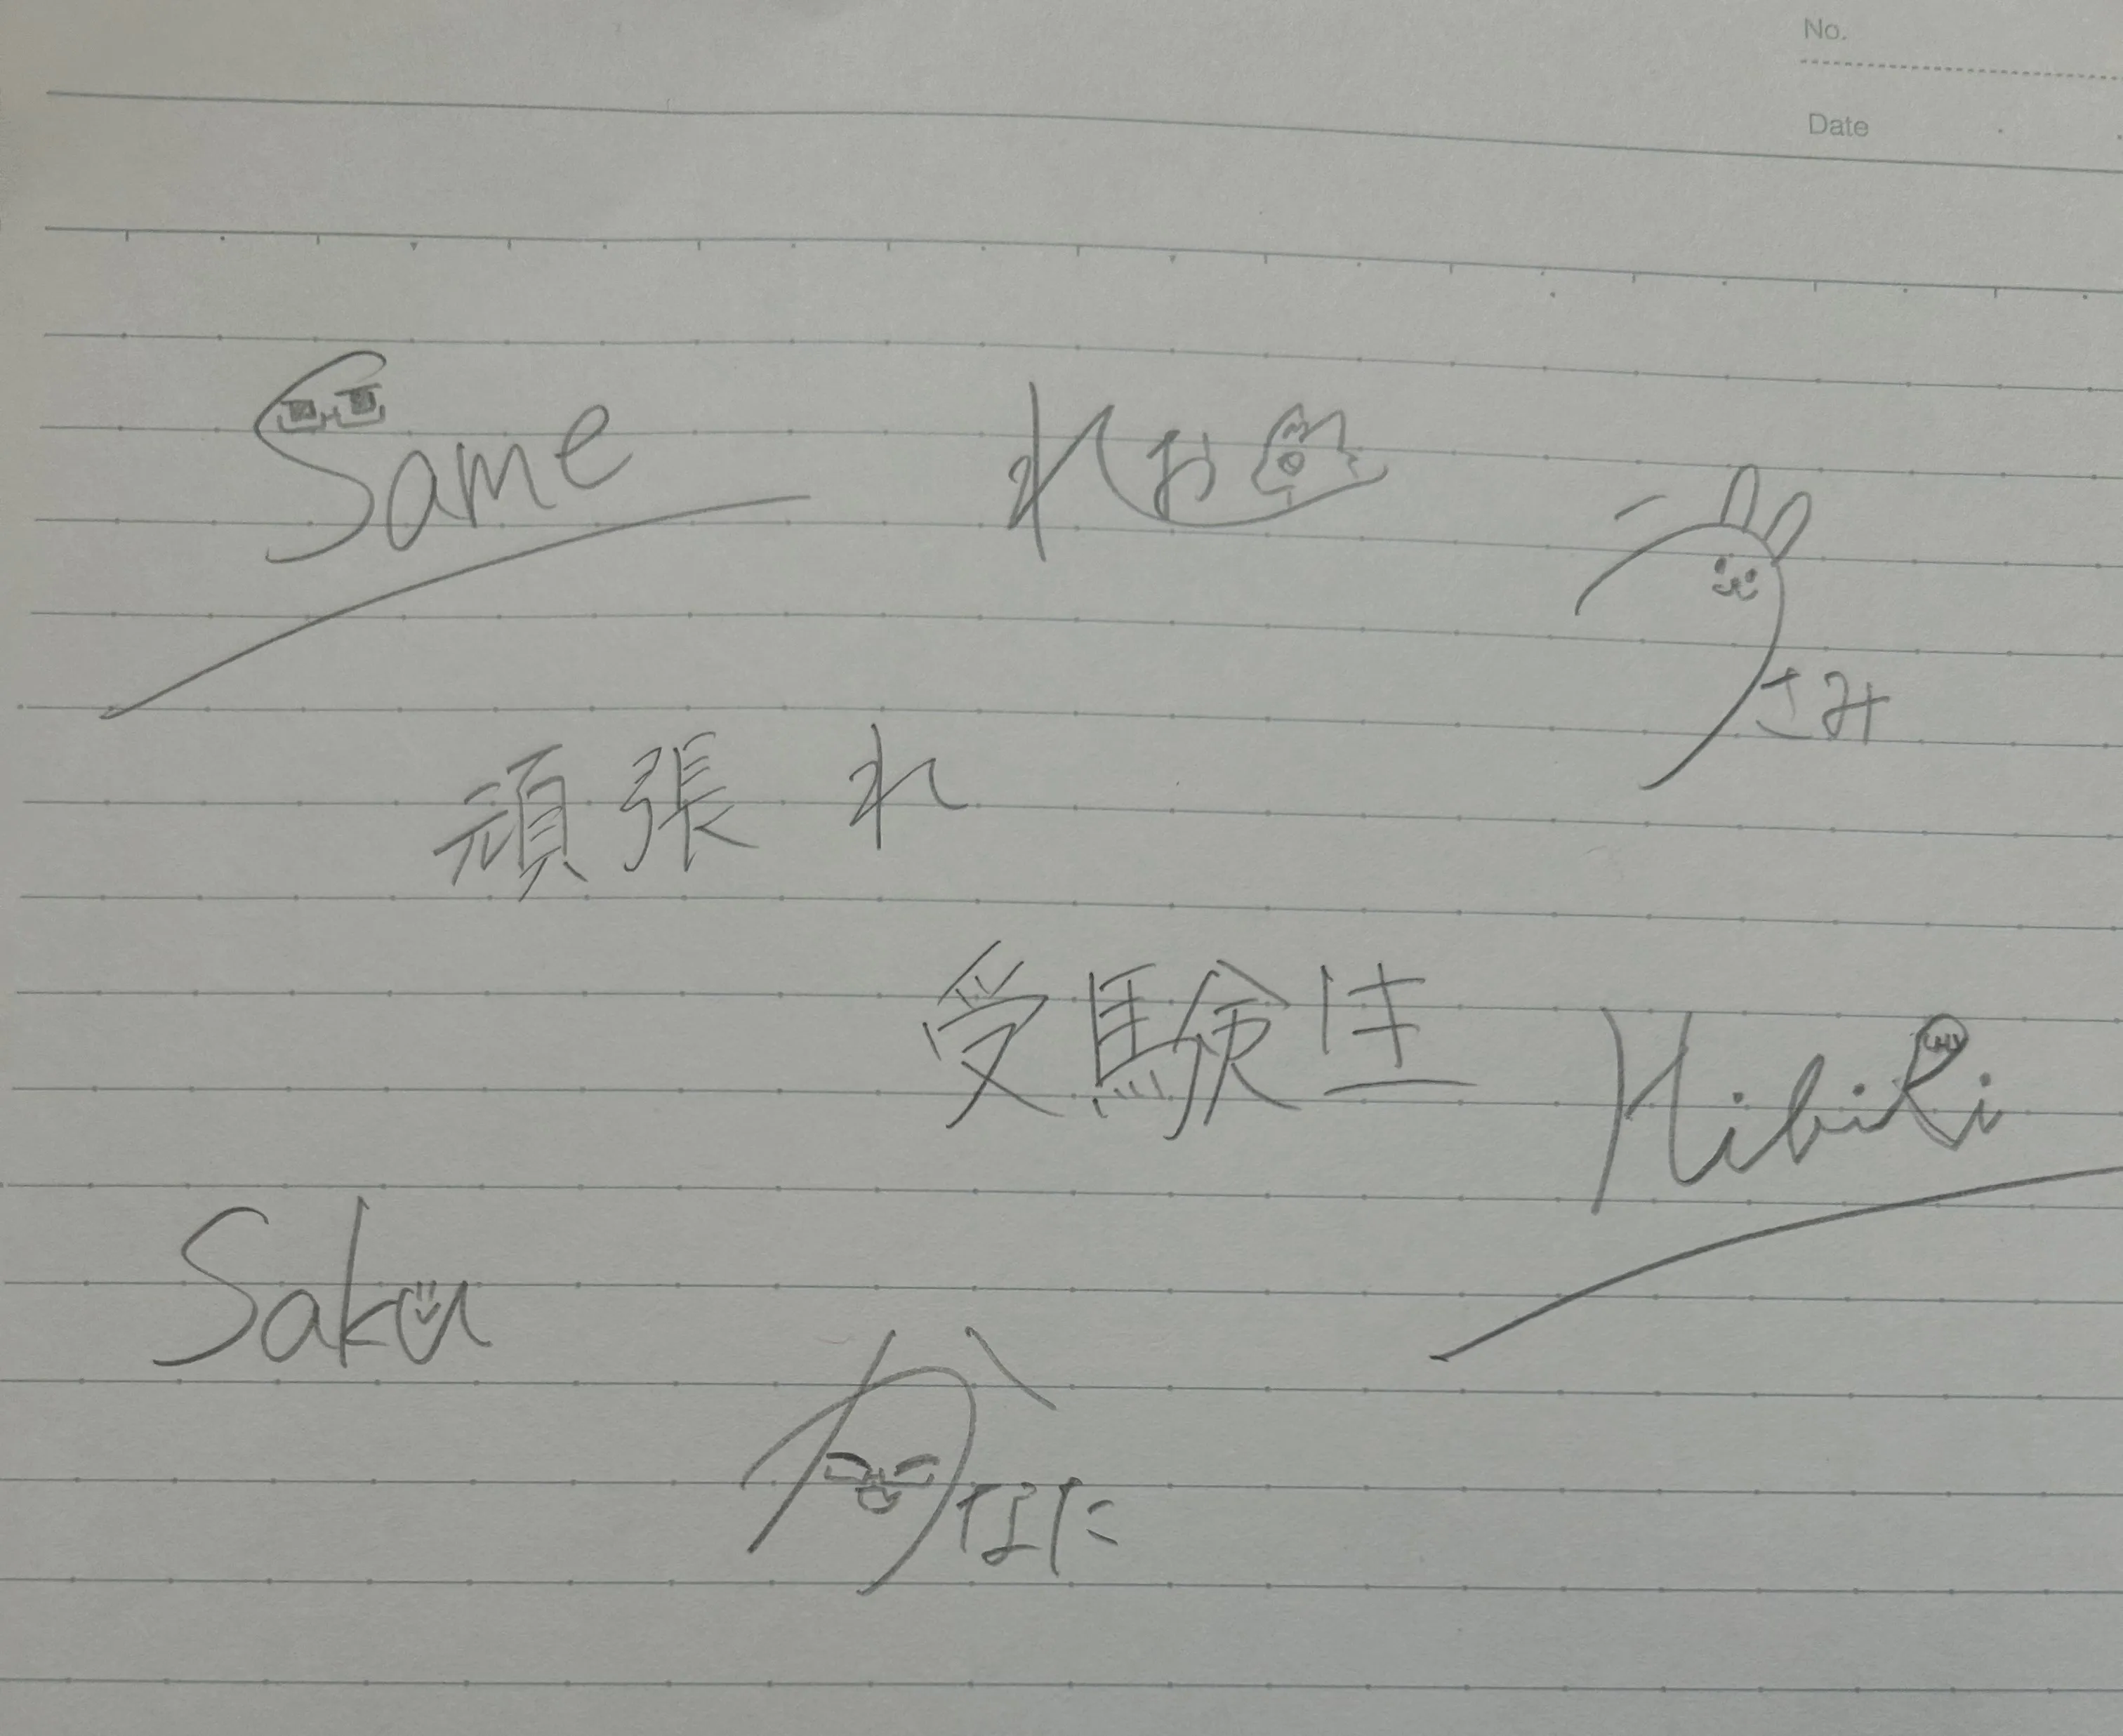 No.
Date
Same
れお
うさみ
頑張れ
受験生
HibiRi
Saku
かなた